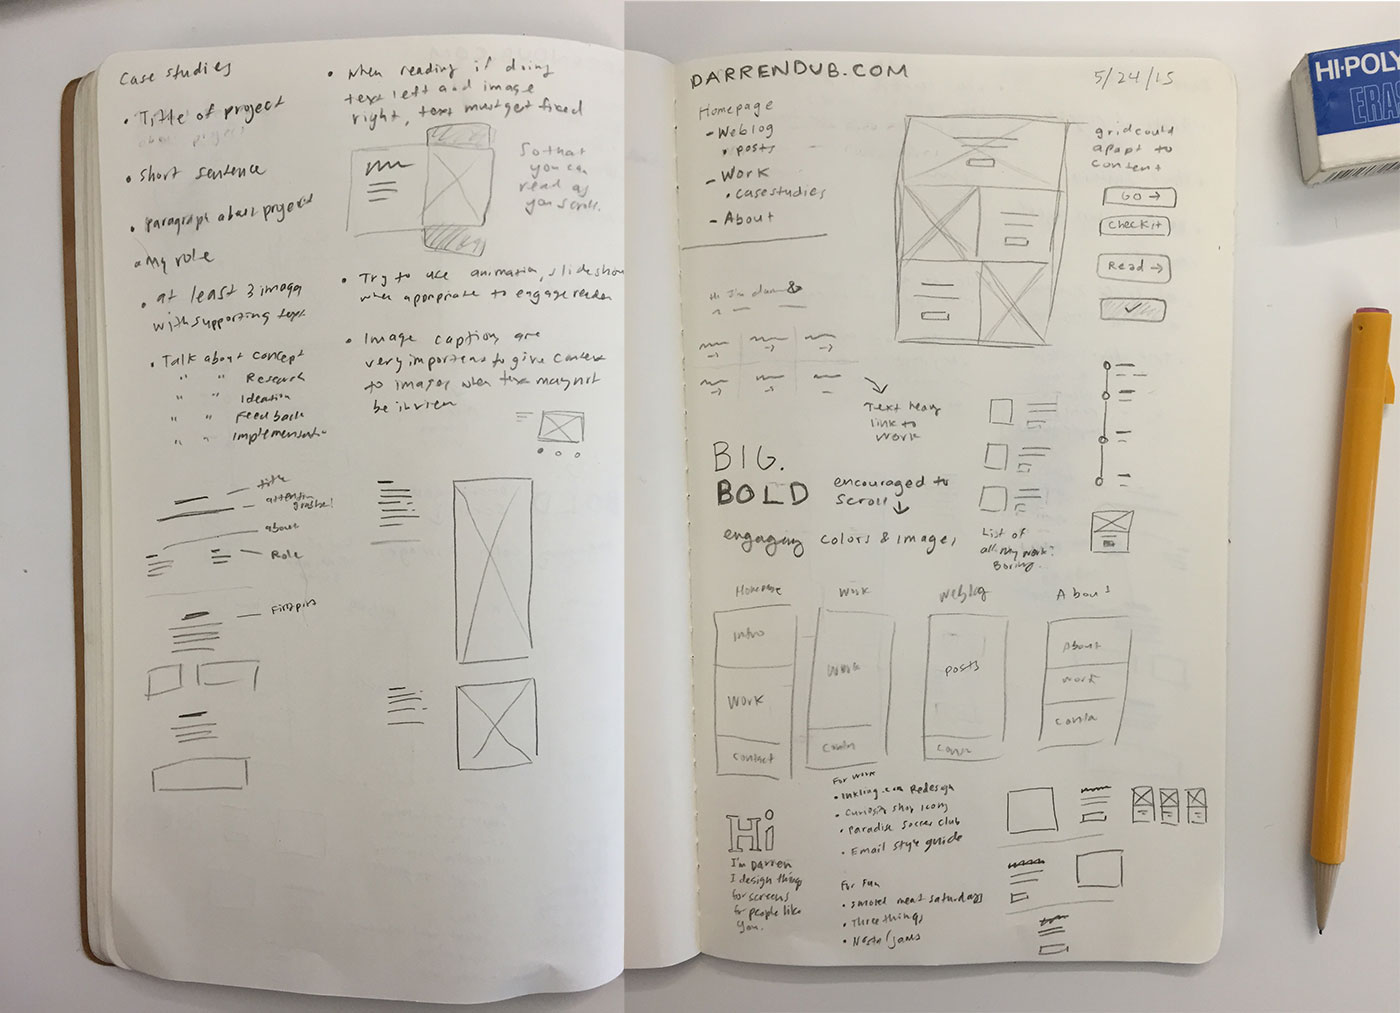 Case studies
• Title of project
about project
• short sentence
• Paragraph about project
• My role
• at least 3 images
with supporting text
• Talk about concept
" " Research
" " Ideation
" " Feedback
" " Implementation
title
attention
about
Role
• When reading if doing
text left and image
right, text must get fixed
So that
you can
read as
you scroll.
• Try to use animation, slideshow
when appropriate to engage reader
• Image caption are
very important to give context
to images when text may not
be in view
DARRENDUB.COM
5/24/15
Homepage
- Weblog
• posts
- Work
• casestudies
- About
grid could
adapt to
content
GO →
Check it
Read →
Hi I'm
Text heavy
link to
work
BIG.
BOLD
encouraged to
scroll ↓
engaging colors & images
List of
all my work?
Boring.
Homepage
Work
Weblog
About
intro
Work
contact
Work
posts
About
work
Hi
I'm Darren
I design things
for screens
for people like
you.
For work
• Inkling.com Redesign
• Curiosity shop icons
• Paradise Soccer club
• Email style guide
For Fun
• smoked meat saturdays
• Three things
HI-POLY